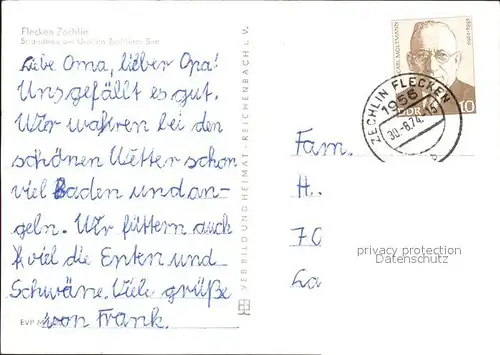 Flecken Zechlin
Strandbad am Großen Zechliner See
Liebe Oma, lieber Opa!
Uns gefällt es gut.
Wir wahren bei den
schönen Wetter schon
viel Baden und an-
geln. Wir füttern auch
viel die Enten und
Schwäne. Viele grüße
von Frank.
EVP M
VEB BILD UND HEIMAT · REICHENBACH I. V.
KARL MOLTMANN
1884-1960
DDR
10
ZECHLIN FLECKEN
1956
30.-8.74
Fam.
H.
70
La
privacy protection
Datenschutz